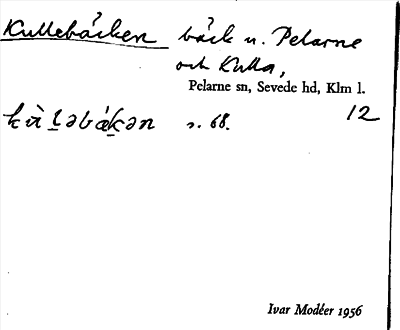 Kullebäcken bäck n. Pelarne
och Kulla,
Pelarne sn, Sevede hd, Klm l.
12
s. 68.
Ivar Modéer 1956